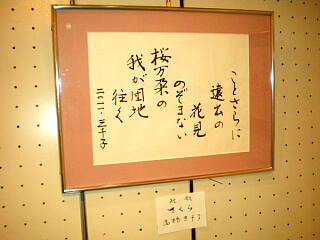 ことさらに
遠出の
花見
のぞまない
桜万朶の
我が団地
往く
二〇一一・三千子
短歌
さくら